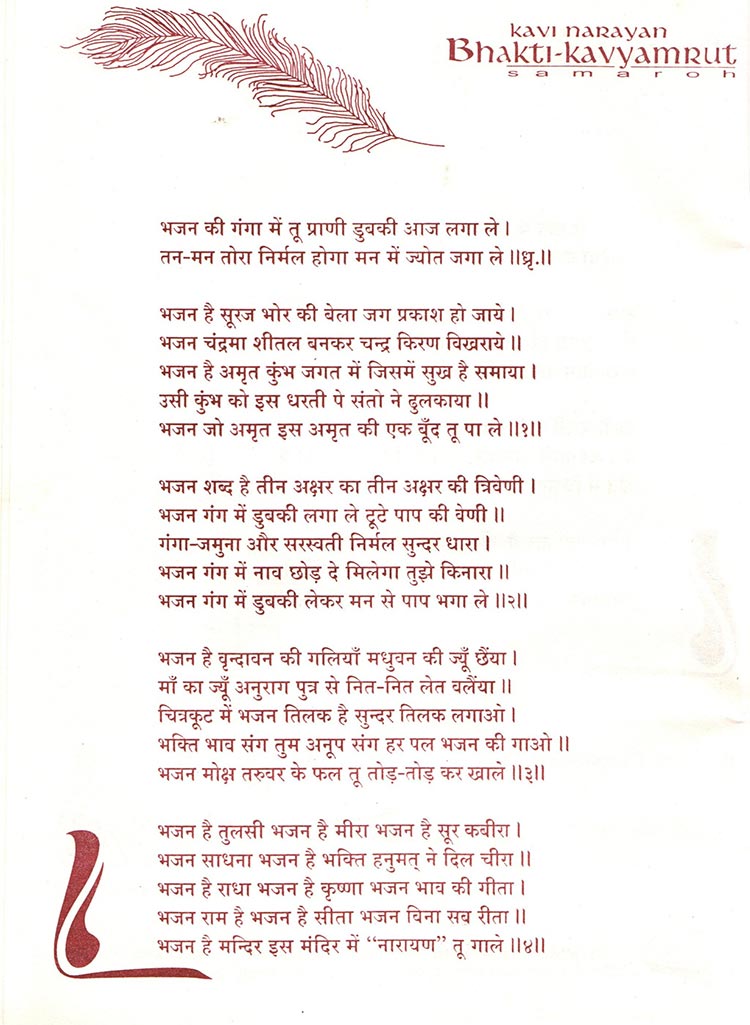 KAVI NARAYAN
Bhakti-kavyamrut
samaroh
भजन की गंगा में तू प्राणी डुबकी आज लगा ले ।
तन-मन तोरा निर्मल होगा मन में ज्योत जगा ले ॥ध्रृ.॥
भजन है सूरज भोर की बेला जग प्रकाश हो जाये ।
भजन चंद्रमा शीतल बनकर चन्द्र किरण बिखराये ॥
भजन है अमृत कुंभ जगत में जिसमें सुख है समाया ।
उसी कुंभ को इस धरती पे संतो ने ढुलकाया ॥
भजन जो अमृत इस अमृत की एक बूँद तू पा ले ॥१॥
भजन शब्द है तीन अक्षर का तीन अक्षर की त्रिवेणी ।
भजन गंग में डुबकी लगा ले टूटे पाप की वेणी ॥
गंगा-जमुना और सरस्वती निर्मल सुन्दर धारा ।
भजन गंग में नाव छोड़ दे मिलेगा तुझे किनारा ॥
भजन गंग में डुबकी लेकर मन से पाप भगा ले ॥२॥
भजन है वृन्दावन की गलियाँ मधुवन की ज्यूँ छैंया ।
माँ का ज्यूँ अनुराग पुत्र से नित-नित लेत बलैंया ॥
चित्रकूट में भजन तिलक है सुन्दर तिलक लगाओ ।
भक्ति भाव संग तुम अनूप संग हर पल भजन की गाओ ॥
भजन मोक्ष तरुवर के फल तू तोड़-तोड़ कर खाले ॥३॥
भजन है तुलसी भजन है मीरा भजन है सूर कबीरा ।
भजन साधना भजन है भक्ति हनुमत् ने दिल चीरा ॥
भजन है राधा भजन है कृष्णा भजन भाव की गीता ।
भजन राम है भजन है सीता भजन बिना सब रीता ॥
भजन है मन्दिर इस मंदिर में “नारायण” तू गाले ॥४॥